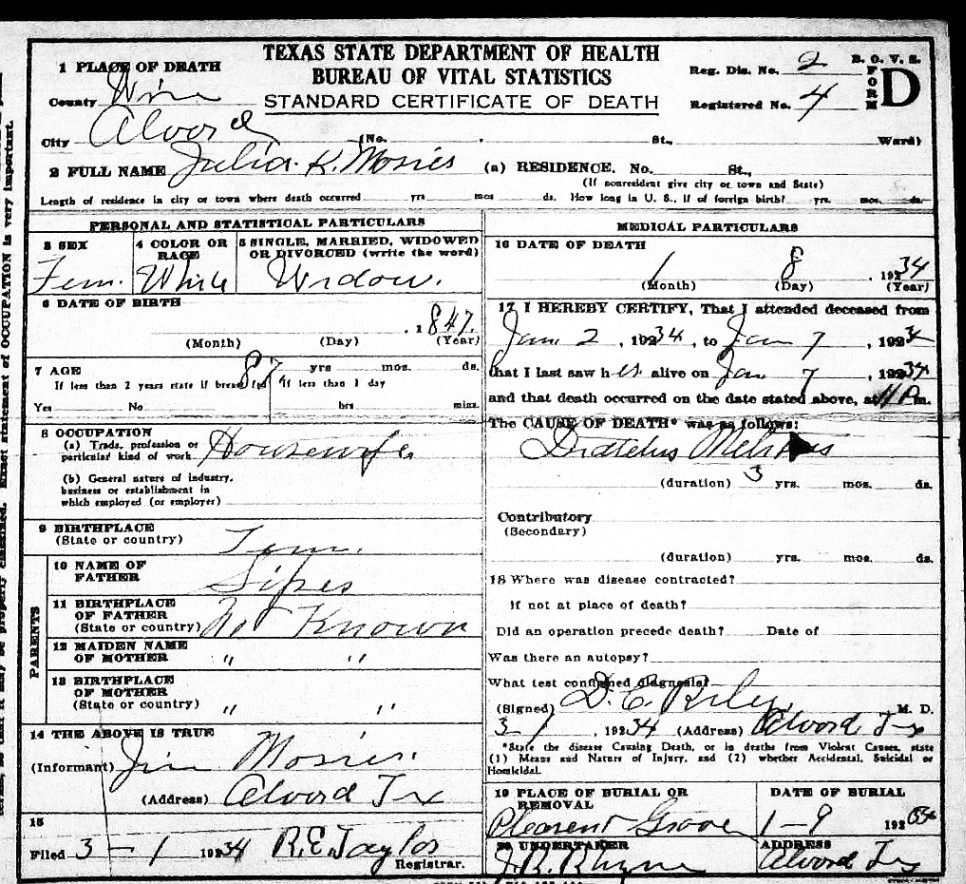 TEXAS STATE DEPARTMENT OF HEALTH
BUREAU OF VITAL STATISTICS
STANDARD CERTIFICATE OF DEATH
Reg. Dis. No. 2
Registered No. 4
B. O. V. S.
FORM D
1 PLACE OF DEATH
County Wise
City Alvord (No. , St., Ward)
2 FULL NAME Julia K. Mosies (a) RESIDENCE. No. St.,
(If nonresident give city or town and State)
Length of residence in city or town where death occurred yrs mos ds. How long in U. S., if of foreign birth? yrs. mos. ds.
PERSONAL AND STATISTICAL PARTICULARS
3 SEX
Fem.
4 COLOR OR RACE
White
5 SINGLE, MARRIED, WIDOWED OR DIVORCED (write the word)
Widow.
6 DATE OF BIRTH
, 1847.
(Month) (Day) (Year)
7 AGE 87 yrs mos. ds.
If less than 2 years state if breast fed If less than 1 day
Yes No hrs mins.
8 OCCUPATION
(a) Trade, profession or
particular kind of work Housewife
(b) General nature of industry,
business or establishment in
which employed (or employer)
9 BIRTHPLACE
(State or country) Tenn.
PARENTS
10 NAME OF
FATHER Sipes
11 BIRTHPLACE
OF FATHER
(State or country) Not Known
12 MAIDEN NAME
OF MOTHER " "
13 BIRTHPLACE
OF MOTHER
(State or country) " "
14 THE ABOVE IS TRUE
(Informant) Jim Mosies.
(Address) Alvord Tx
15
Filed 3-1 1934 R.E. Taylor
Registrar.
MEDICAL PARTICULARS
16 DATE OF DEATH
1 8 , 1934
(Month) (Day) (Year)
17 I HEREBY CERTIFY, That I attended deceased from
Jan 2, 1934, to Jan 7, 1934
that I last saw her alive on Jan 7, 1934
and that death occurred on the date stated above, at 11 P.m.
The CAUSE OF DEATH* was as follows:
(duration) 3 yrs. mos. ds.
Contributory
(Secondary)
(duration) yrs. mos. ds.
18 Where was disease contracted?
If not at place of death?
Did an operation precede death? Date of
Was there an autopsy?
What test confirmed diagnosis?
(Signed) D. C. Riley, M. D.
3-1, 1934 (Address) Alvord Tx
*State the disease Causing Death, or in deaths from Violent Causes, state
(1) Means and Nature of Injury, and (2) whether Accidental, Suicidal or
Homicidal.
19 PLACE OF BURIAL OR REMOVAL
Pleasent Grove
DATE OF BURIAL
1-9 1934
20 UNDERTAKER
J. R. Rhyne
ADDRESS
Alvord Tx